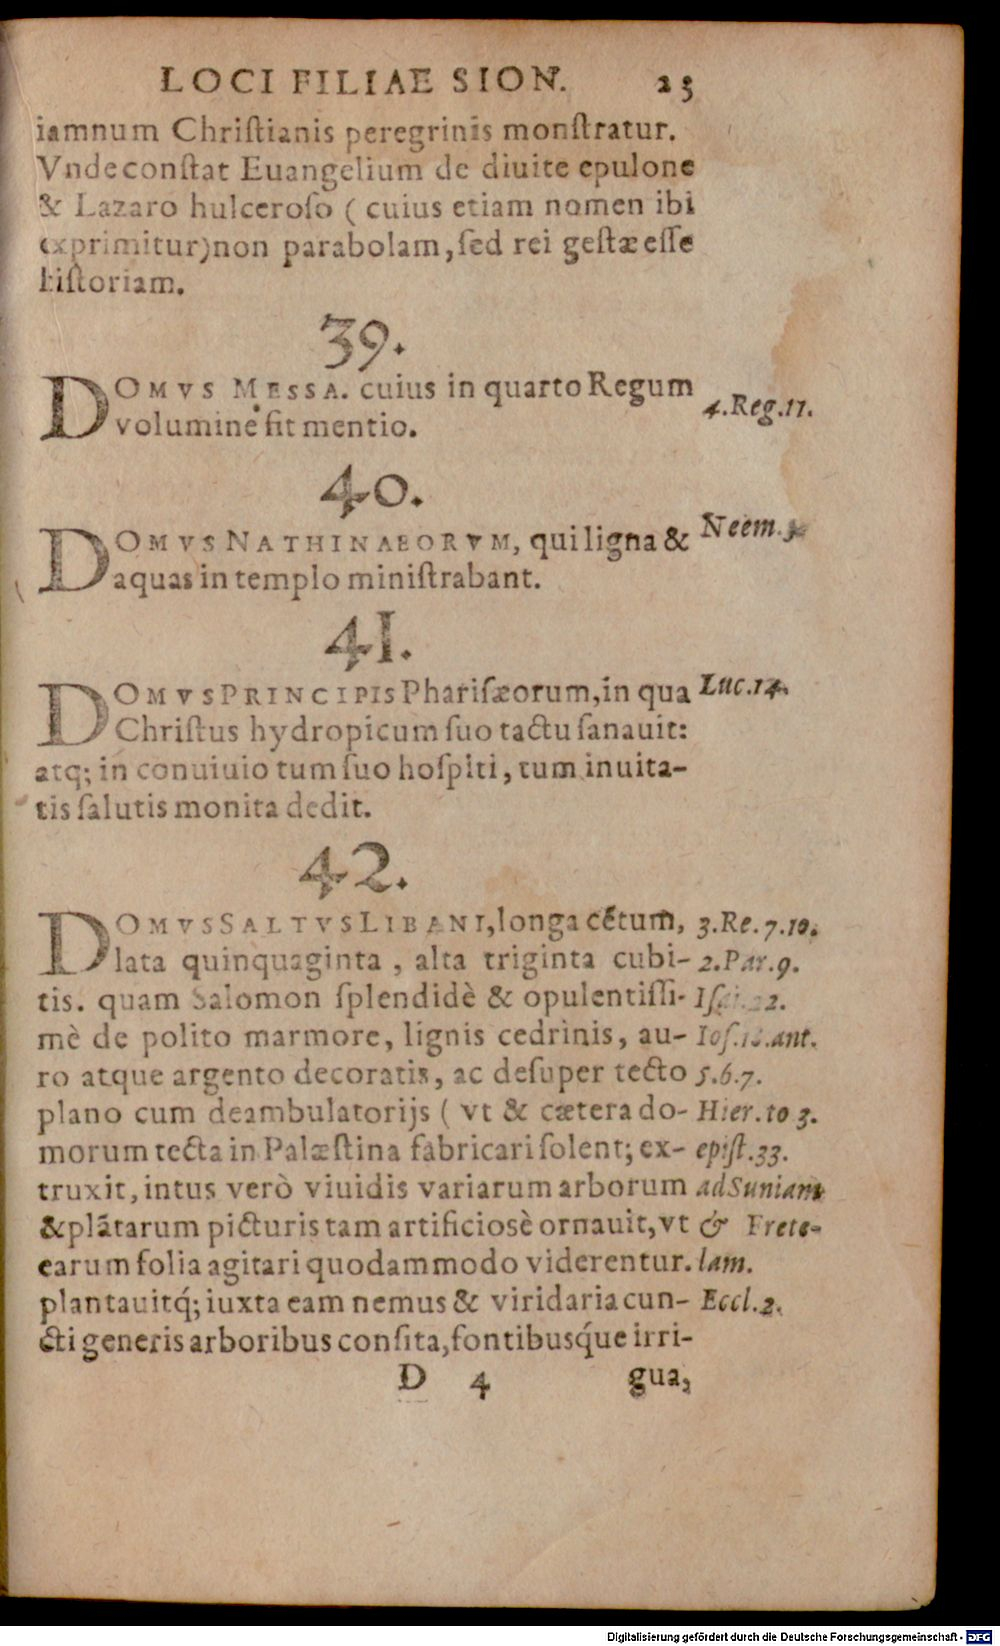 LOCI FILIAE SION. 23
iamnum Chriſtianis peregrinis monſtratur.
Vnde conſtat Euangelium de diuite epulone
& Lazaro hulceroſo ( cuius etiam nomen ibi
exprimitur) non parabolam, ſed rei geſtæ eſſe
hiſtoriam.
39.
DOMVS MESSA. cuius in quarto Regum
volumine fit mentio.
4.Reg.11.
40.
DOMVS NATHINAEORVM, qui ligna &
aquas in templo miniſtrabant.
Neem.3.
41.
DOMVS PRINCIPIS Phariſæorum, in qua
Chriſtus hydropicum ſuo tactu ſanauit:
atq; in conuiuio tum ſuo hoſpiti, tum inuita-
tis ſalutis monita dedit.
Luc.14.
42.
DOMVS SALTVS LIBANI, longa cētum,
lata quinquaginta , alta triginta cubi-
tis. quam Salomon ſplendidè & opulentiſſi-
mè de polito marmore, lignis cedrinis, au-
ro atque argento decoratis, ac deſuper tecto
plano cum deambulatorijs ( vt & cætera do-
morum tecta in Palæſtina fabricari ſolent; ex-
truxit, intus verò viuidis variarum arborum
& plātarum picturis tam artificiosè ornauit, vt
earum folia agitari quodammodo viderentur.
plantauitq́; iuxta eam nemus & viridaria cun-
cti generis arboribus conſita, fontibusq́ue irri-
3.Re.7.10.
2.Par.9.
Iſai.22.
Ioſ. ant.
5.6.7.
Hier.to 3.
epiſt.33.
ad Suniam
& Frete-
lam.
Eccl.2.
D 4 gua,
Digitalisierung gefördert durch die Deutsche Forschungsgemeinschaft - DFG